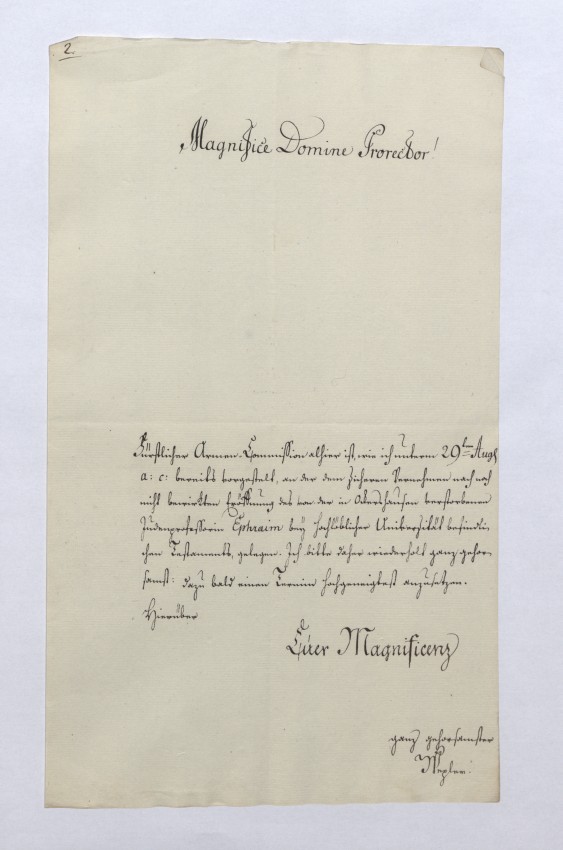 2.
Magnifice Domine Prorector!
Fürstlicher Armen-Commission alhier ist, wie ich unterm 29ten Augst
a: c: bereits vorgestellt, an der dem sicheren Vernehmen nach noch
nicht bewirkten Eröffnung des von der in verstorbenen
Judenprofessorin Ephraim bey hochlöblicher Universität befindli-
chen Testaments, gelegen. Ich bitte daher wiederholt ganz gehor-
samst: dazu bald einen Termin hochgeneigtest anzusetzen.
Hierüber
Euer Magnificenz
ganz gehorsamster